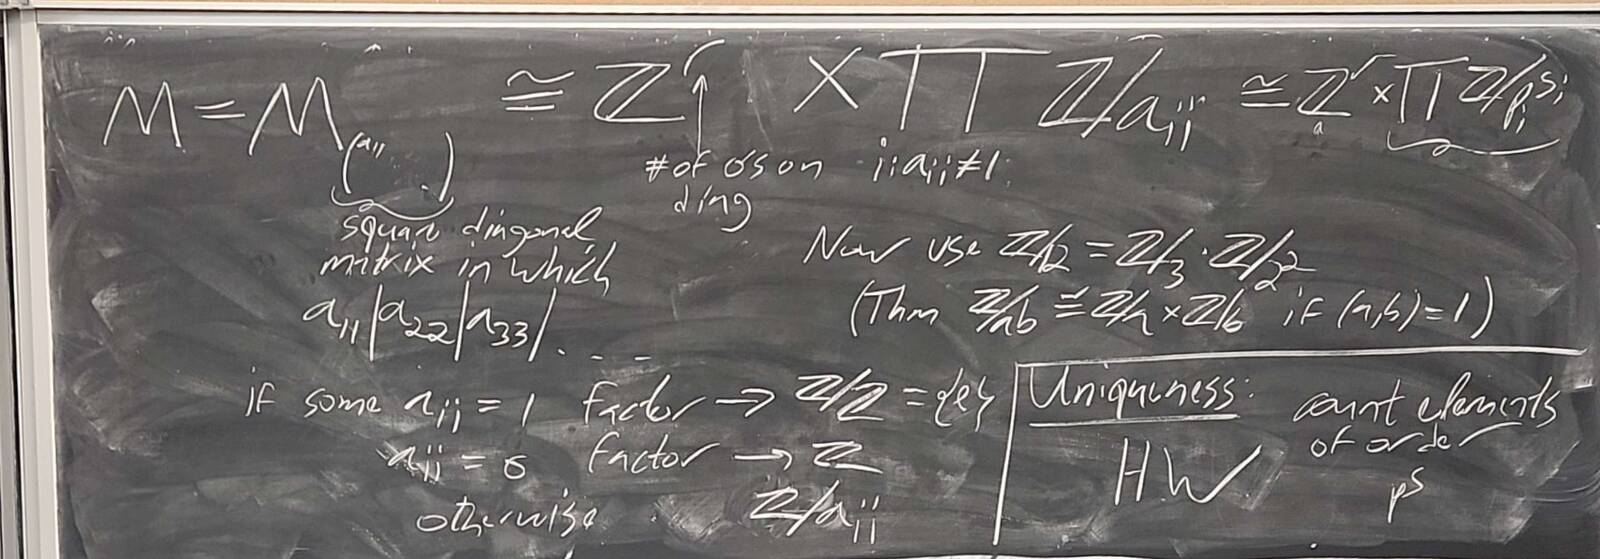 M = M(a₁₁ ⋱) ≅ ℤ^r × ∏ ℤ/a_ii ≅ ℤ^r × ∏ ℤ/p_i^{s_i}
↑
# of 0's on diag
i: a_ii ≠ 1
square diagonal
matrix in which
a₁₁|a₂₂|a₃₃|. . . .
Now use ℤ/12 = ℤ/3 · ℤ/2²
(Thm ℤ/ab ≅ ℤ/a × ℤ/b if (a,b) = 1)
if some a_ii = 1 factor → ℤ/ℤ = {e}
a_ii = 0 factor → ℤ
otherwise ℤ/a_ii
Uniqueness:
HW
count elements
of order
p^s